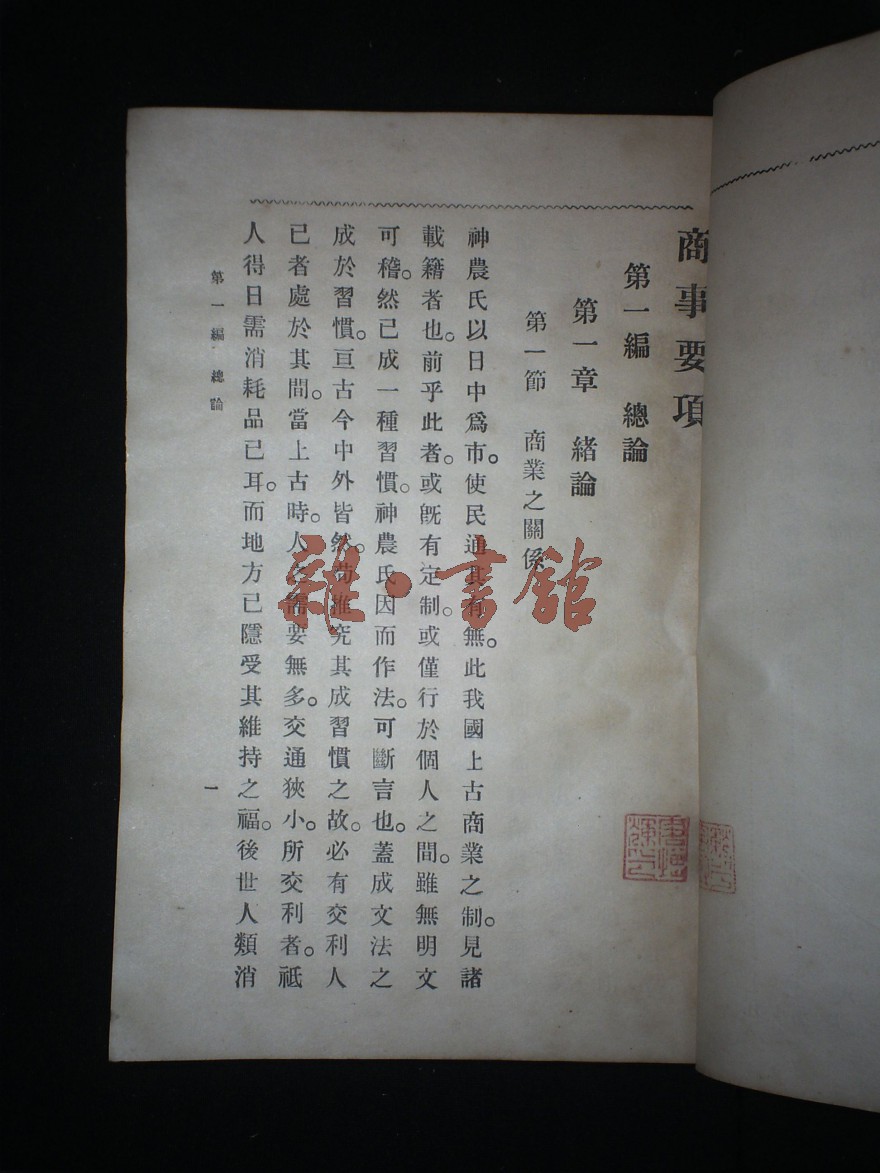 商事要項
第一編　總論
第一章　緒論
第一節　商業之關係
神農氏以日中爲市。使民通其有無。此我國上古商業之制。見諸
載籍者也。前乎此者。或旣有定制。或僅行於個人之間。雖無明文
可稽。然已成一種習慣。神農氏因而作法。可斷言也。蓋成文法之
成於習慣。亘古今中外皆然。苟推究其成習慣之故。必有交利人
己者處於其間。當上古時。人之需要無多。交通狹小。所交利者。祗
人得日需消耗品已耳。而地方已隱受其維持之福。後世人類消
第一編　總論
一
雜·書館